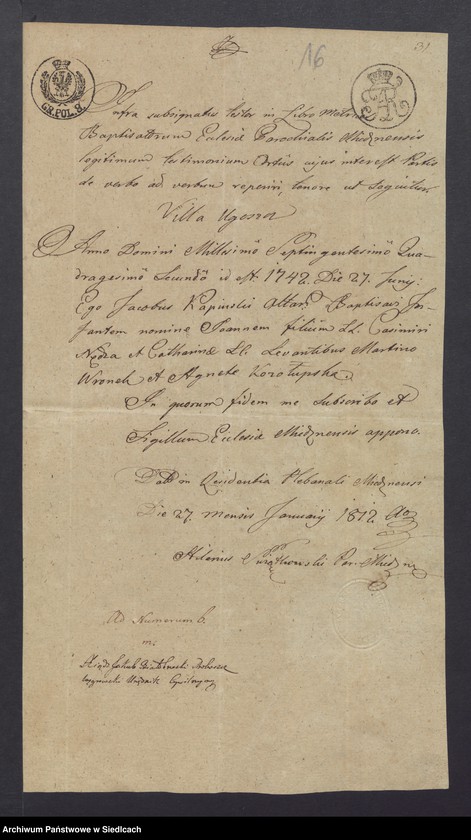 16
31
GR.POL.8.
Infra subsignatus testor in Libro Metrices
Baptisatorum Eclesiæ Parochialis Miedznensis
legitimum testimonium Ortus cujus interest Partis
de verbo ad verbum reperiri, tenore ut sequitur
Villa Ugoszcz
Anno Domini Millesimô Septingentesimô Qua-
dragesimô Secundô id est. 1742. Die 27. Junij.
Ego Jacobus Kapinski Altar. Baptisavi In-
fantem nomine Joannem filium LL. Casimiri
Nędza et Catharinæ LL. Levantibus Martino
Wronek et Agnete Kozołupska.
In quorum fidem me Subscribo et
Sigillum Eclesiæ Miedznensis appono.
Datt in Residentia Plebanali Miedznensi
Die 27. mensis Januarij 1812. Ao
Hilarius Par. Miedzn
Ad Numerum 6.
m.
Xiądz Jakub Proboszcz
Urzędnik Cywilny
Archiwum Państwowe w Siedlcach